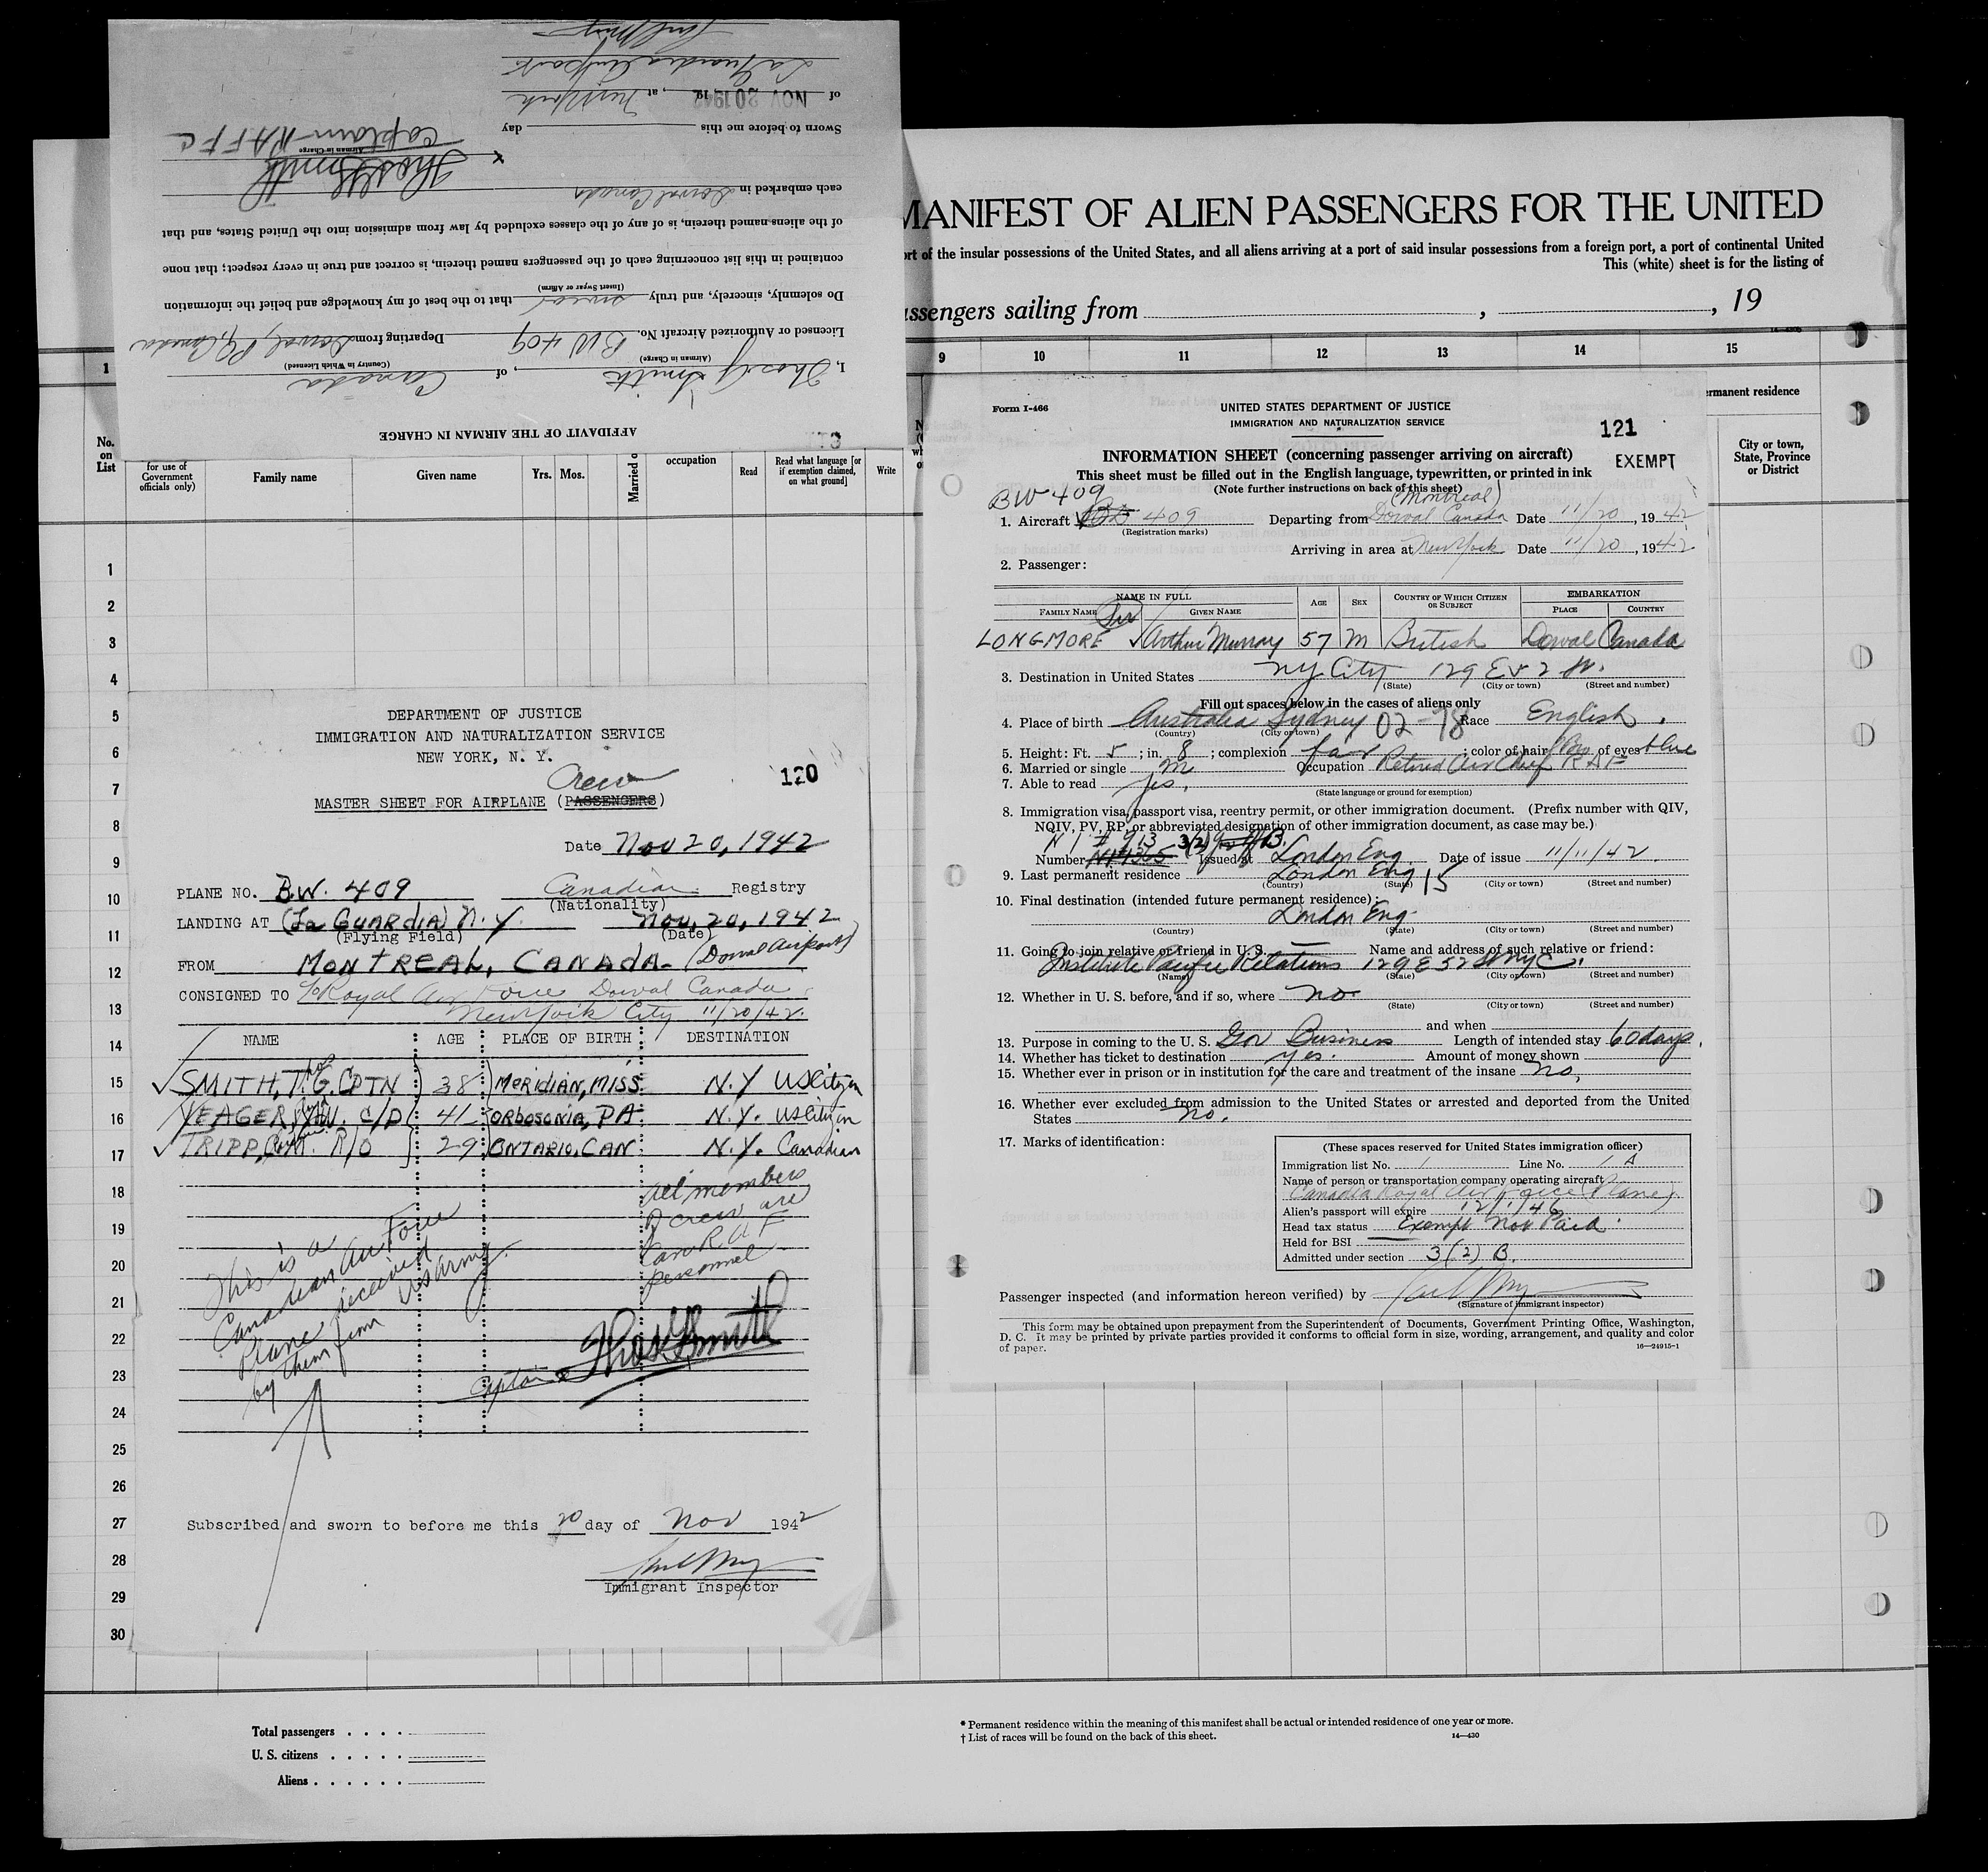 AFFIDAVIT OF THE AIRMAN IN CHARGE
I, Thos G Smith, of Canada
(Airman in Charge) (Country in Which Licensed)
Licensed or Authorized Aircraft No. BW 409 Departing from Dorval P Q Canada
Do solemnly, sincerely, and truly swear that to the best of my knowledge and belief the information
(Insert Swear or Affirm)
contained in this list concerning each of the passengers named therein, is correct and true in every respect; that none
of the aliens named therein, is of any of the classes excluded by law from admission into the United States, and that
each embarked in Dorval Canada
x Thos G Smith
Airman in Charge
Captain RAFFC
Sworn to before me this day
of NOV 20 1942 19 , at New York
La Guardia Airport
MANIFEST OF ALIEN PASSENGERS FOR THE UNITED
ort of the insular possessions of the United States, and all aliens arriving at a port of said insular possessions from a foreign port, a port of continental United
This (white) sheet is for the listing of
assengers sailing from , , 19
1 9 10 11 12 13 14 15
No. on List
for use of Government officials only)
Family name
Given name
Yrs. Mos.
Married o
occupation
Read
Read what language [or if exemption claimed, on what ground]
Write
ermanent residence
City or town, State, Province or District
1
2
3
4
5
6
7
8
9
10
11
12
13
14
15
16
17
18
19
20
21
22
23
24
25
26
27
28
29
30
DEPARTMENT OF JUSTICE
IMMIGRATION AND NATURALIZATION SERVICE
NEW YORK, N. Y.
120
Crew
MASTER SHEET FOR AIRPLANE (PASSENGERS)
Date Nov 20, 1942
PLANE NO. B.W. 409 Canadian Registry
(Nationality)
LANDING AT (La GUARdIA) N.Y. Nov, 20, 1942
(Flying Field) (Date)
FROM MONTREAL, CANADA. (Dorval Airport)
CONSIGNED TO To Royal Air Force Dorval Canada
New York City 11/20/42.
NAME AGE PLACE OF BIRTH DESTINATION
SMITH, T. G. CPTN 38 MERIDIAN, MISS. N.Y US Citizen
YEAGER, W. C/P 41 ORBOSONIA, PA. N.Y. US Citizen
TRIPP, C.M. R/O 29 ONTARIO, CAN N.Y. Canadian
All members
of crew are
Can R A F
personnel
This is a
Canadian Air Force
Plane received
by them from
US Army.
Thos G Smith
Captain
Subscribed and sworn to before me this 20 day of Nov 1942
Immigrant Inspector
Form I-466
UNITED STATES DEPARTMENT OF JUSTICE
IMMIGRATION AND NATURALIZATION SERVICE
121
EXEMPT
INFORMATION SHEET (concerning passenger arriving on aircraft)
This sheet must be filled out in the English language, typewritten, or printed in ink
(Note further instructions on back of this sheet)
BW 409 (Montreal)
1. Aircraft 409 Departing from Dorval Canada Date 11/20, 1942
(Registration marks)
Arriving in area at New York Date 11/20, 1942
2. Passenger:
NAME IN FULL AGE SEX COUNTRY OF WHICH CITIZEN OR SUBJECT EMBARKATION
FAMILY NAME GIVEN NAME PLACE COUNTRY
Sir
LONGMORE Arthur Murray 57 M British Dorval Canada
3. Destination in United States NY City 129 E 52 St.
(State) (City or town) (Street and number)
Fill out spaces below in the cases of aliens only
4. Place of birth Australia Sydney 02-78 Race English.
(Country) (City or town)
5. Height: Ft. 5; in. 8; complexion fair; color of hair Bro of eyes blue
6. Married or single M Occupation Retired Air Chief R A F
7. Able to read yes.
(State language or ground for exemption)
8. Immigration visa, passport visa, reentry permit, or other immigration document. (Prefix number with QIV,
NQIV, PV, RP, or abbreviated designation of other immigration document, as case may be.)
N I # 913 3(2) B.
Number Issued at London Eng. Date of issue 11/11/42.
9. Last permanent residence London Eng 15
(Country) (State) (City or town) (Street and number)
10. Final destination (intended future permanent residence):
London Eng.
(Country) (State) (City or town) (Street and number)
11. Going to join relative or friend in U. S. — Name and address of such relative or friend:
Institute Pacific Relations 129 E 52 St NYC.
(Name) (State) (City or town) (Street and number)
12. Whether in U. S. before, and if so, where no
(State) (City or town) (Street and number)
and when
13. Purpose in coming to the U. S. Gov Business Length of intended stay 60 days.
14. Whether has ticket to destination yes. Amount of money shown
15. Whether ever in prison or in institution for the care and treatment of the insane No.
16. Whether ever excluded from admission to the United States or arrested and deported from the United
States no.
17. Marks of identification:
(These spaces reserved for United States immigration officer)
Immigration list No. 1 Line No. 1 A
Name of person or transportation company operating aircraft
Canadia Royal Air Force (Plane)
Alien's passport will expire 12/1/46
Head tax status Exempt Nov Paid.
Held for BSI —
Admitted under section 3(2) B.
Passenger inspected (and information hereon verified) by
(Signature of immigrant inspector)
This form may be obtained upon prepayment from the Superintendent of Documents, Government Printing Office, Washington,
D. C. It may be printed by private parties provided it conforms to official form in size, wording, arrangement, and quality and color
of paper. 16—24915-1
Total passengers . . . .
U. S. citizens . . . . .
Aliens . . . . . .
* Permanent residence within the meaning of this manifest shall be actual or intended residence of one year or more.
† List of races will be found on the back of this sheet. 14—430